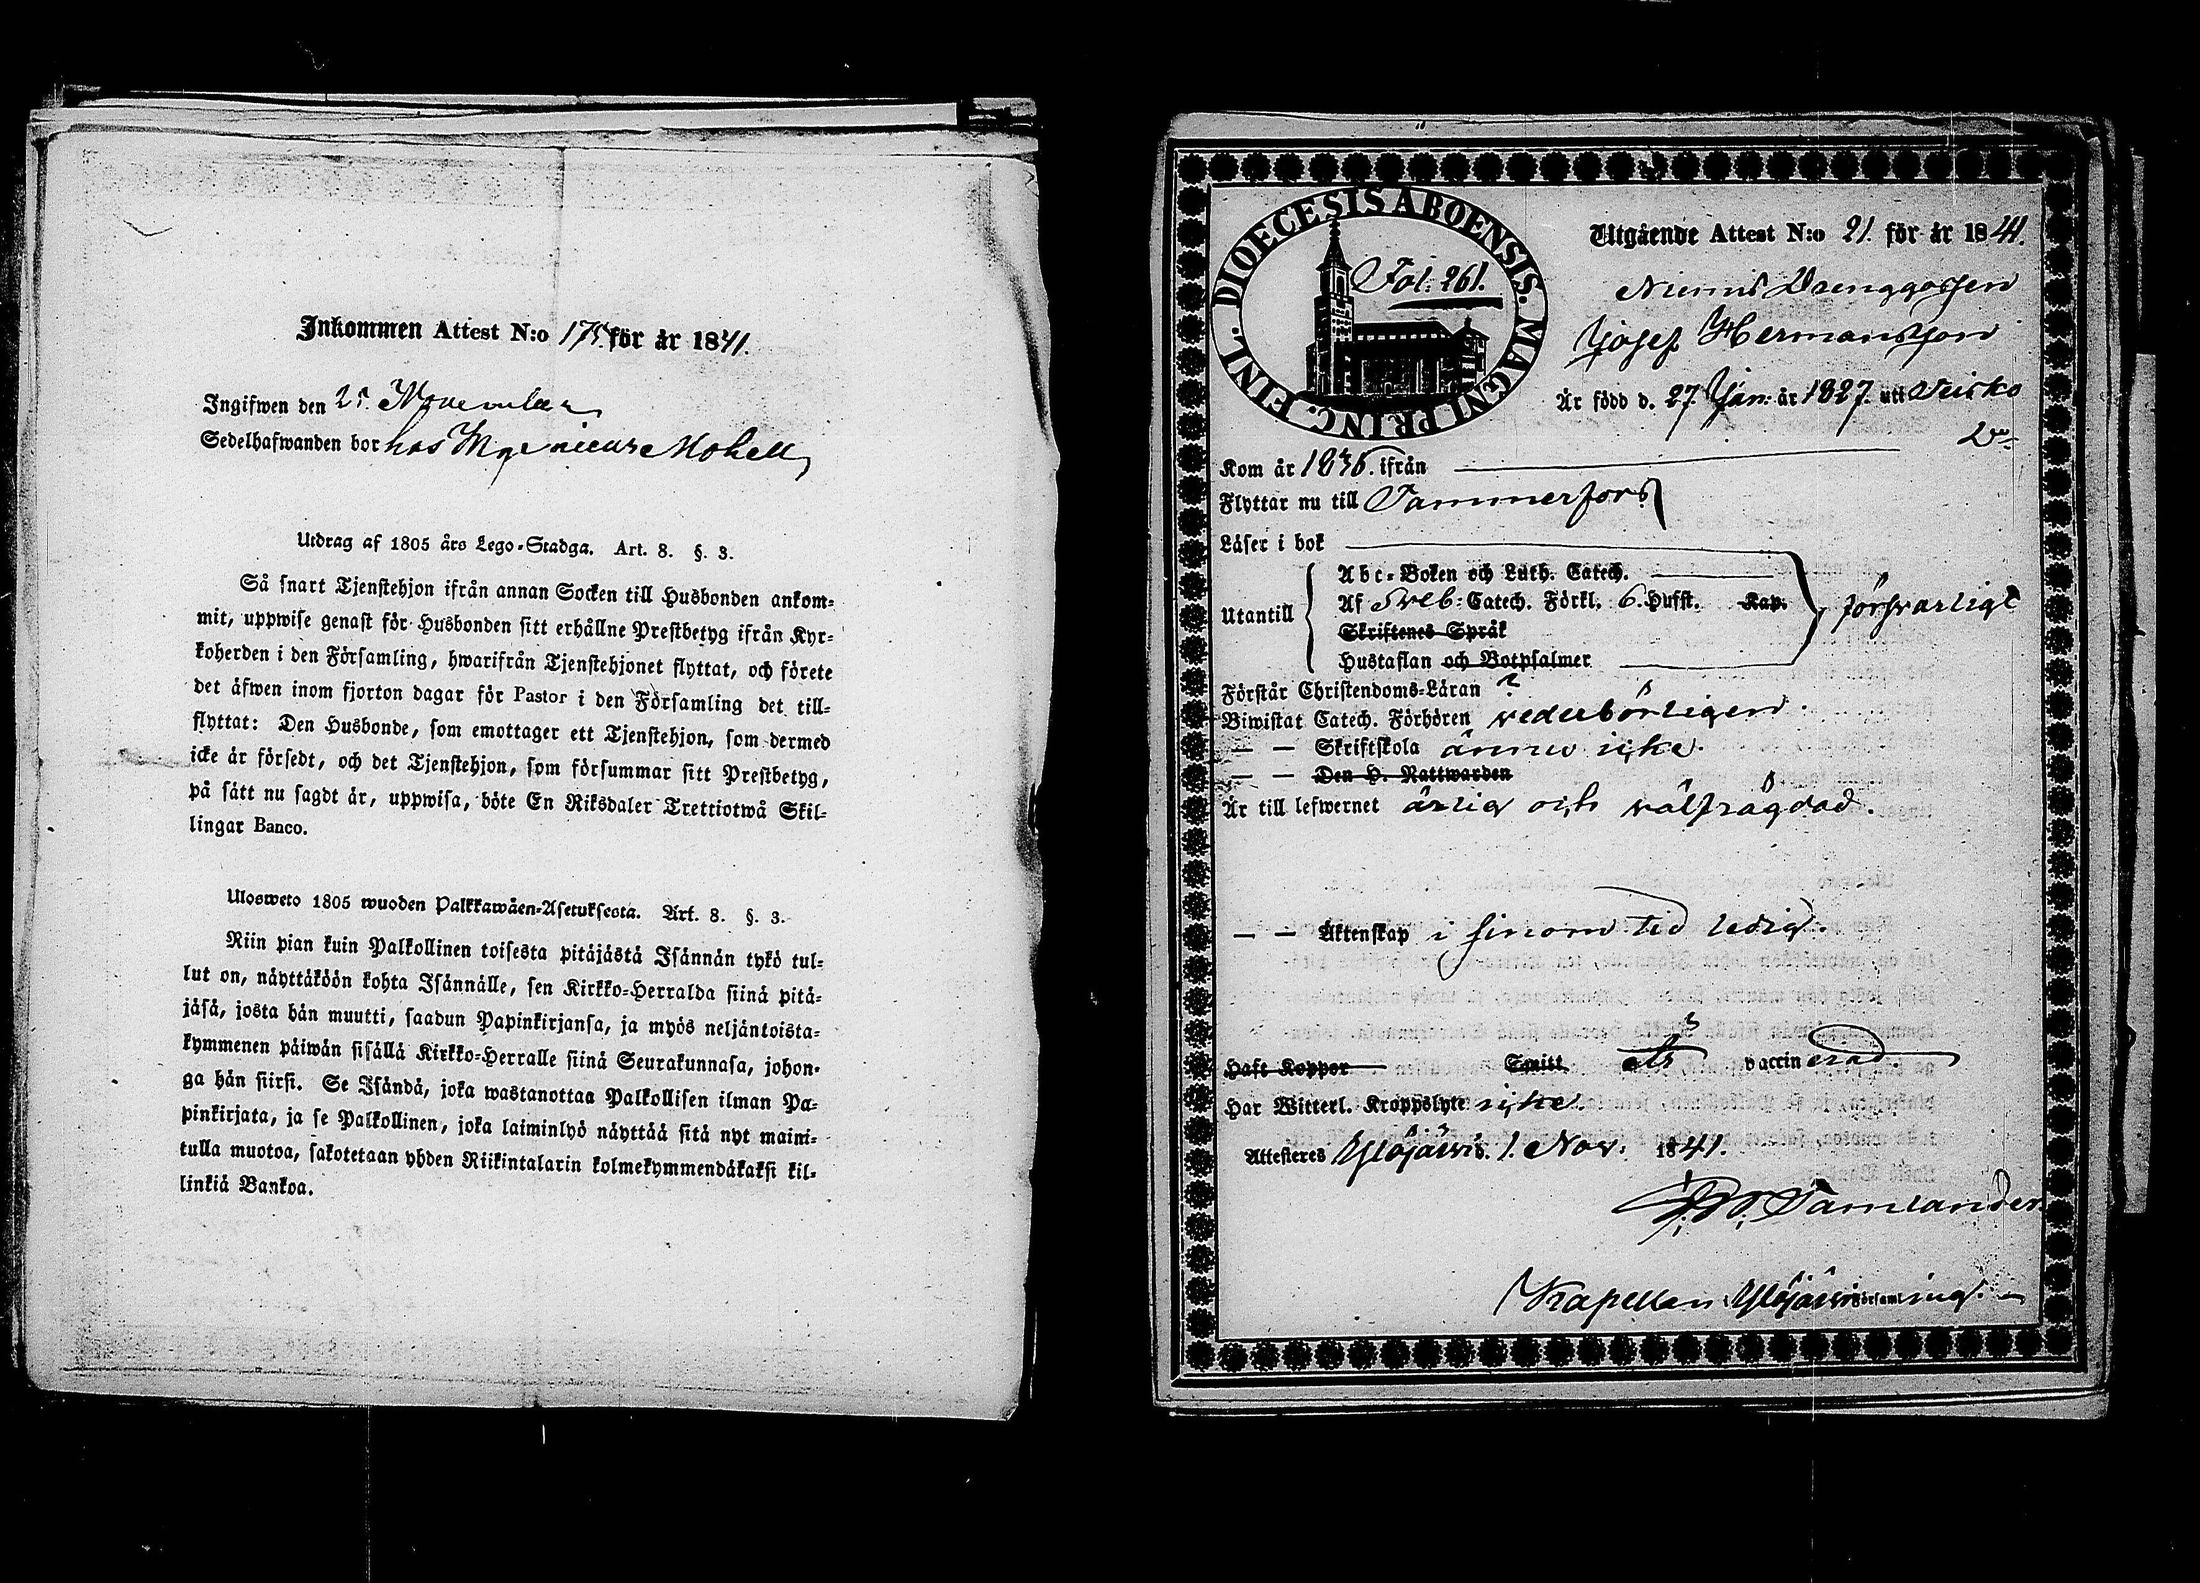 Inkommen Attest N:o 175 för år 1841.
Ingifwen den 25 November
Sedelhafwanden bor hos Ingenieur Mohell
Utdrag af 1805 års Lego-Stadga. Art. 8. §. 3.
Så snart Tjenstehjon ifrån annan Socken till Husbonden ankom-
mit, uppwise genast för Husbonden sitt erhållne Prestbetyg ifrån Kyr-
koherden i den Församling, hwarifrån Tjenstehjonet flyttat, och förete
det äfwen inom fjorton dagar för Pastor i den Församling det till-
flyttat: Den Husbonde, som emottager ett Tjenstehjon, som dermed
icke är försedt, och det Tjenstehjon, som försummar sitt Prestbetyg,
på sätt nu sagdt är, uppwisa, böte En Riksdaler Trettiotwå Skil-
lingar Banco.
Ulosweto 1805 wuoden Palkkawäen-Asetuksesta. Art. 8. §. 3.
Niin pian kuin Palkollinen toisesta pitäjästä Isännän tykö tul-
lut on, näyttäköön kohta Isännälle, sen Kirkko-Herralda siinä pitä-
jäsä, josta hän muutti, saadun Papinkirjansa, ja myös neljäntoista-
kymmenen päiwän sisällä Kirkko-Herralle siinä Seurakunnasa, johon-
ga hän siirsi. Se Isändä, joka wastanottaa Palkollisen ilman Pa-
pinkirjata, ja se Palkollinen, joka laiminlyö näyttää sitä nyt maini-
tulla muotoa, sakotetaan yhden Riikintalarin kolmekymmendäkaksi kil-
linkiä Bankoa.
DIOECESIS ABOENSIS. MAGNI PRINC. FINL.
Fol: 261.
Utgående Attest N:o 21. för år 1841.
Niemis Drenggossen
Josef Hermansson
Är född d. 27. Jan: år 1827. uti Teisko
Kom år 1836. ifrån
Flyttar nu till Tammerfors
Läser i bok
Utantill
Abc-Boken och Luth. Catech.
Af Sveb: Catech. Förkl. 6. Hufst. Kap.
försvarligt
Skriftenes Språk
Hustaflan och Botpsalmer
Förstår Christendoms-Läran ?
Biwistat Catech. Förhören vederbörligen.
— — Skriftskola ännu icke.
— — Den H. Nattwarden
Är till lefwernet ärlig och välfrägdad.
— — Äktenskap i sinom tid ledig.
Haft Koppor Smitt är vaccinerad
Har Witterl. Kroppslyte icke.
Attesteras Ylöjärvi. 1. Nov. 1841.
Tamlander
Kapellan i Ylöjärvi Församling.